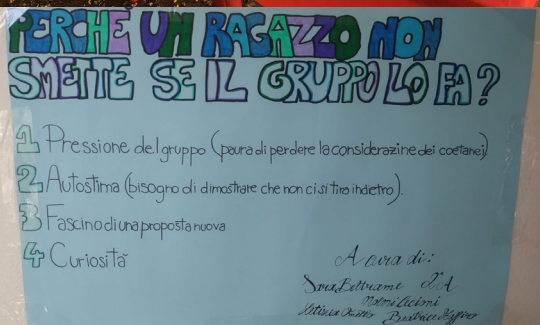 PERCHE UN RAGAZZO NON
SMETTE SE IL GRUPPO LO FA?
1 Pressione del gruppo (paura di perdere la considerazine dei coetanei)
2 Autostima (bisogno di dimostrare che non ci si tira indietro).
3 Fascino di una proposta nuova
4 Curiosità
A cura di:
Sara Beltrame 2°A
Beatrice